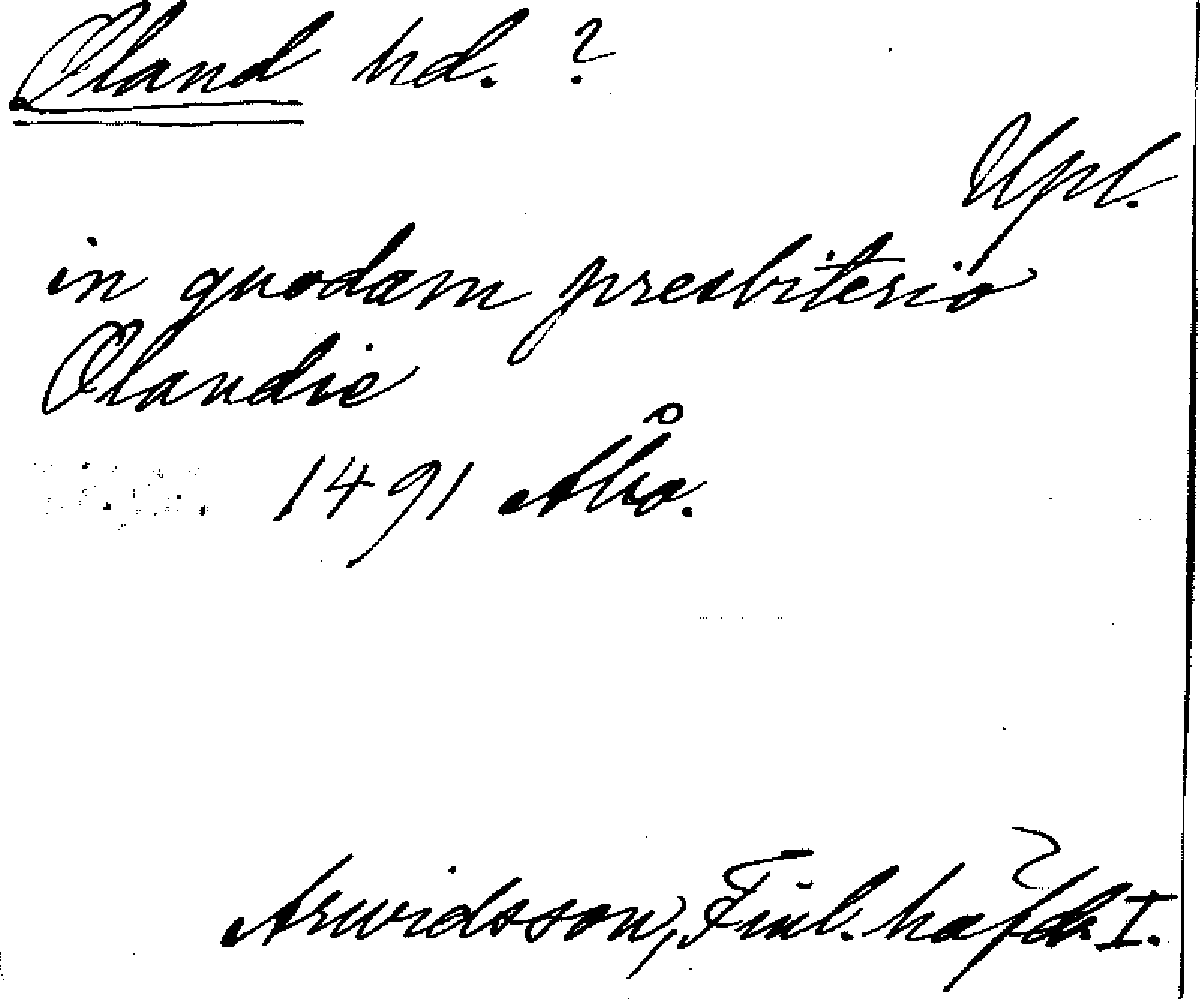 Oland hd. ?
Upl.
in quodam presbiterio
Olandie
1491 Åbo.
Arwidsson, Finl. häfd. I.